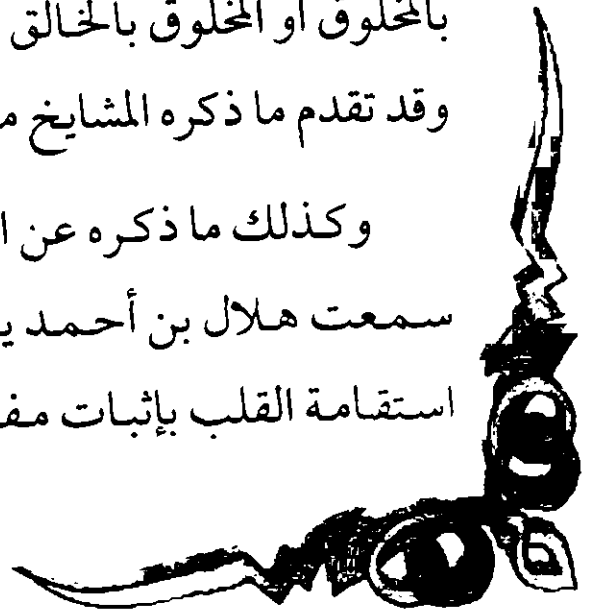 بالمخلوق أو المخلوق بالخالق
وقد تقدم ما ذكره المشايخ
وكذلك ما ذكره عن
سمعت هلال بن أحمد
استقامة القلب بإثبات